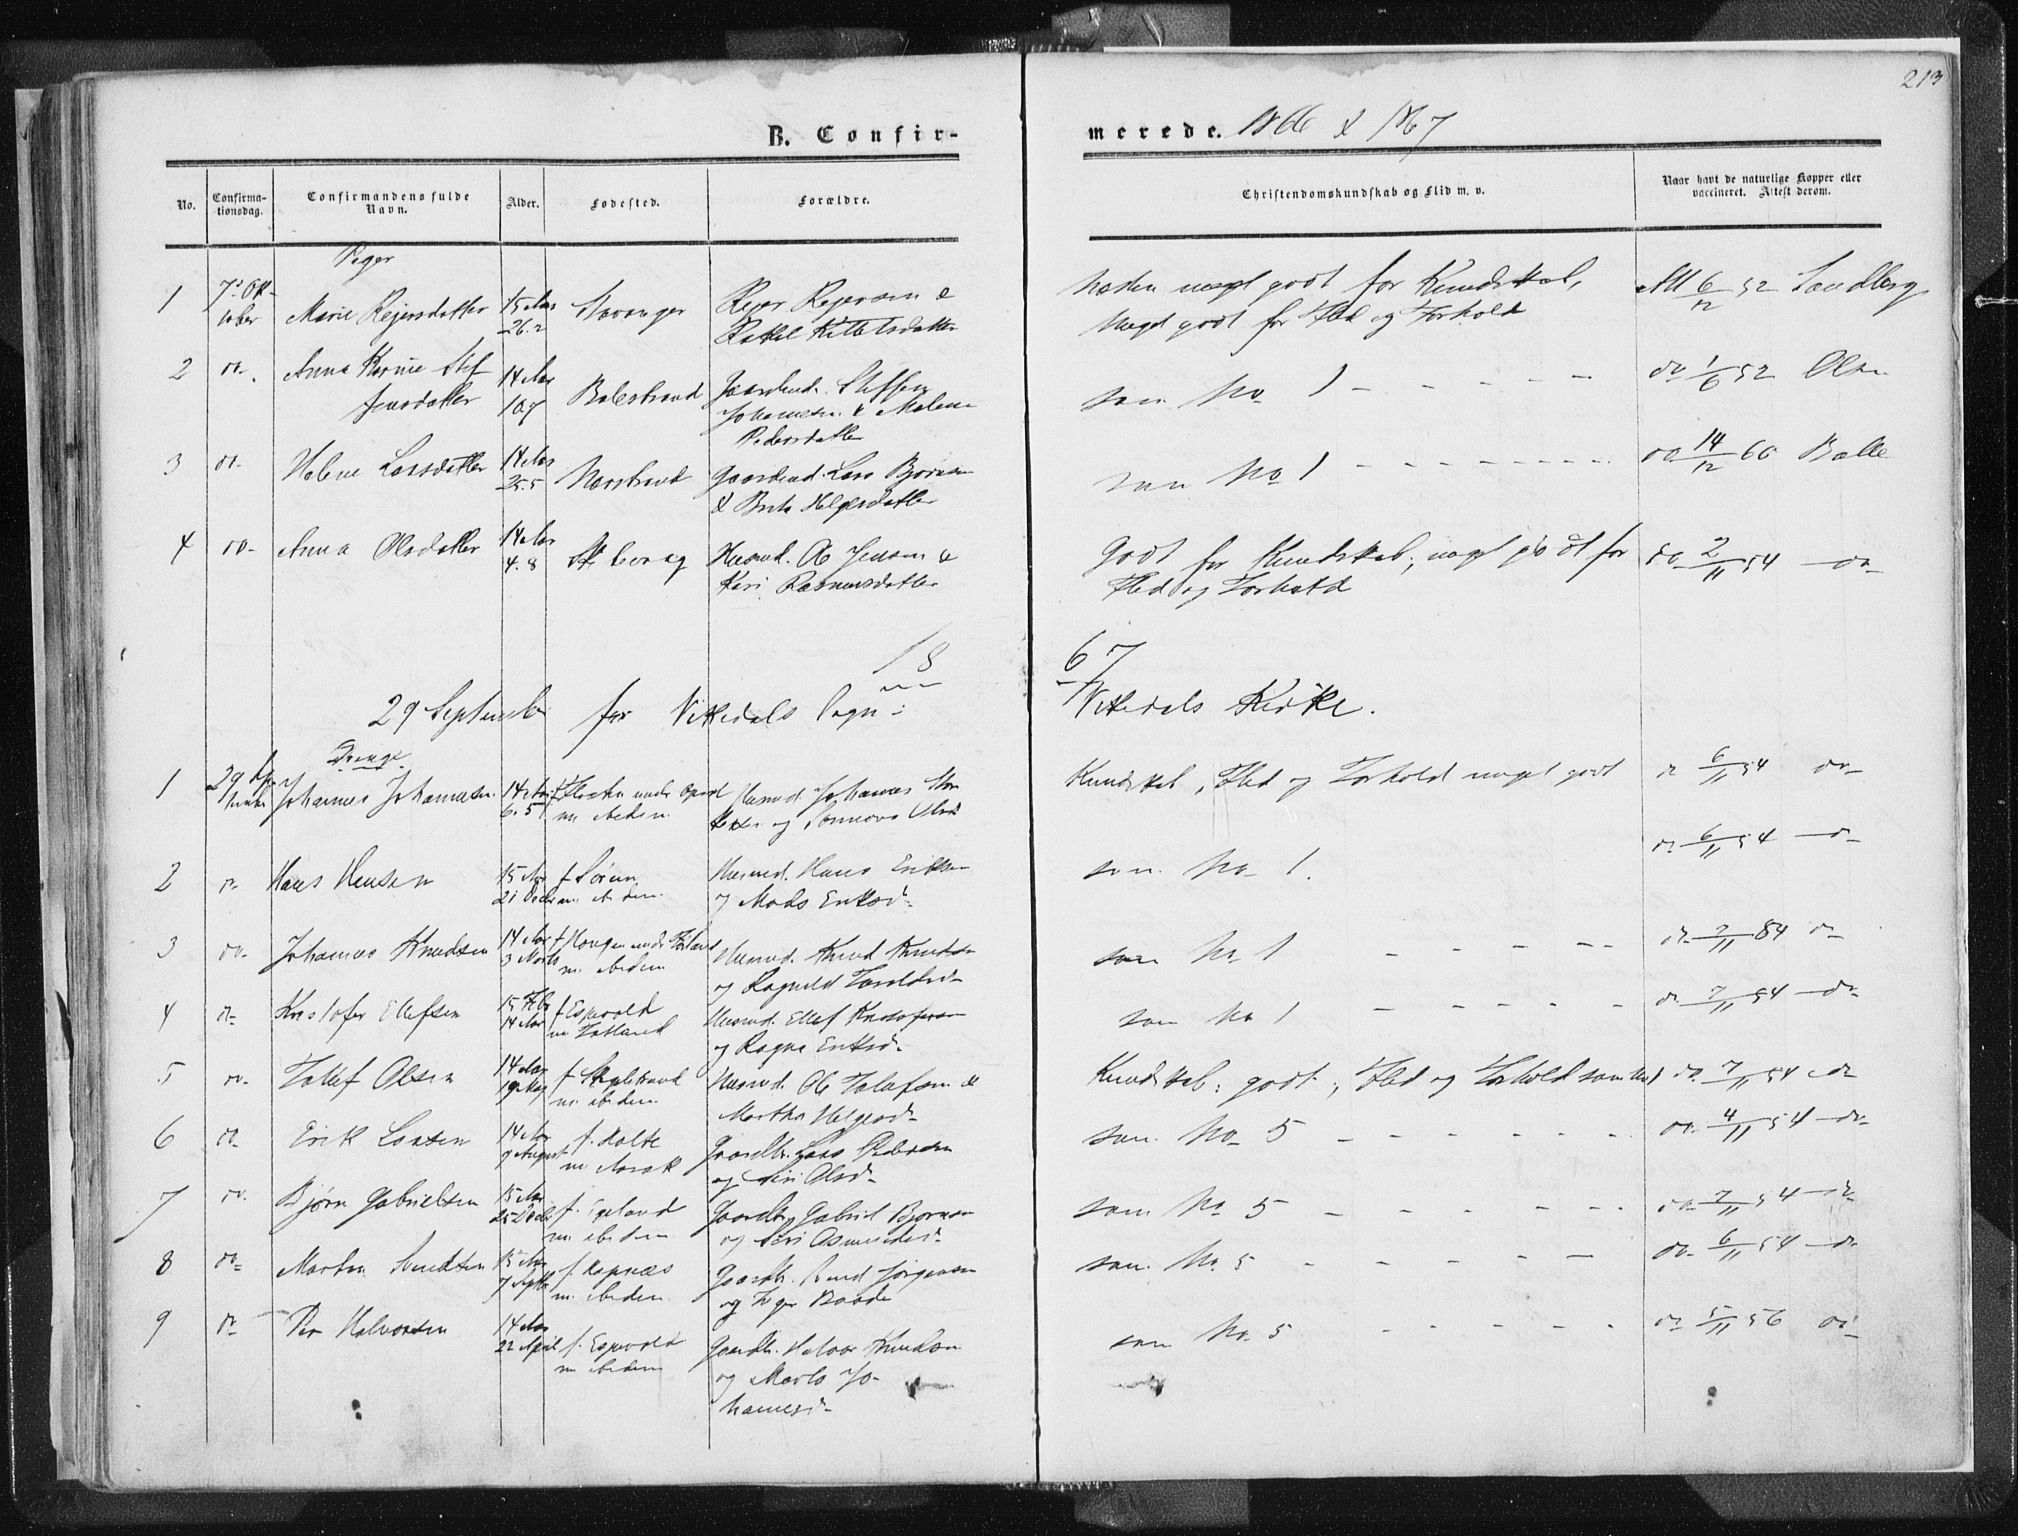 213
B. Confir-
merede. 1866 & 1867
No.
Confirma-
tionsdag.
Confirmandens fulde
Navn.
Alder.
Fødested.
Forældre.
Christendomskundskab og Flid m. v.
Naar havt de naturlige Kopper eller
vaccineret. Attest derom.
Piger
1 7de Ok-
tober Marie Rejersdatter 15 Aar
26.2 Stavanger Rejer Rejersen &
Rakel Kittelsdatter
næsten meget godt for Kundskab,
meget godt for Flid og Forhold
Att 6/12 52 Sandberg
2 do. Anna Karine Stef
fensdatter 14 Aar
10.7 Balestrand Gaardmd. Steffen
Johannesen & Malene
Pedersdatter
som No 1 - - - - -
do 1/6 52 Olsen
3 do- Helene Larsdatter 14 Aar
25.5 Narstrand Gaardmd. Lars Bjørnsen
& Brita Helgesdatter
som No 1 - - - - - -
do 14/12 60 Balle
4 do- Anna Olsdatter 14 Aar
4.8 Husmd. Ole Jensen &
Kari Rasmusdatter
Godt for Kundskab, meget godt for
Flid og Forhold
do 2/11 54 -do-
18
67
29 September for Vikedals Sogn i
Vikedals Kirke.
Drenge
1 29 Sep-
tember Johannes Johannesen 14 Aar
6.5 f under
m. ibidem. Husmd. Johannes
og
Kundskab, Flid og Forhold meget godt
do 6/11 54 do-
2 do- Hans Hansen 15 Aar
21 f
m. ibidem. Husmd. Hans Eriksen
og Eriksd-
som No 1.
do- 6/11 54 -do-
3 do- Johannes Knudsen 14 Aar
3 Marts f Haugen under
m. ibidem Husmd. Knud Knudsen
og Ragnild
som No 1 - - - - -
do- 7/11 84 do-
4 do- Kristofer Ellefsen 15 Febr
14 Aar f Espevold
m. Husmd. Ellef Kristofersen
og Ragna Eriksd-
som No 1 - - - - - -
do- 7/11 54 -do-
5 do- Tollef Olsen 14 Aar
f
m. ibidem Husmd. Ole &
Martha Helgesd-
Kundskab: godt; Flid og Forhold som No 1
do- 7/11 54 -do-
6 do- Erik Larsen 14 Aar
9 August f. Kolte
m. Gaardbr. Lars Pedersen
og Siri Olsd-
som No 5 - - - - - -
do- 4/11 54 -do-
7 do. Bjørn Gabrielsen 15 Aar
f.
m. ibidem Gaardbr. Gabriel Bjørnsen
og Siri Osmundsd-
som No 5 - - - - - -
do- 7/11 54 -do-
8 do- 15 Aar
7 f. Hapnæs
m. ibidem. Gaardbr. Jørgensen
og Baade
som No 5 - - - - -
do- 6/11 54 -do-
9 do- Per Halvorsen 14 Aar
22 April f. Espevold
m. ibidem Gaardbr. Halvor Knudsen
og Jo-
hannesd-
som No. 5 - - - - -
do- 5/11 56 do-